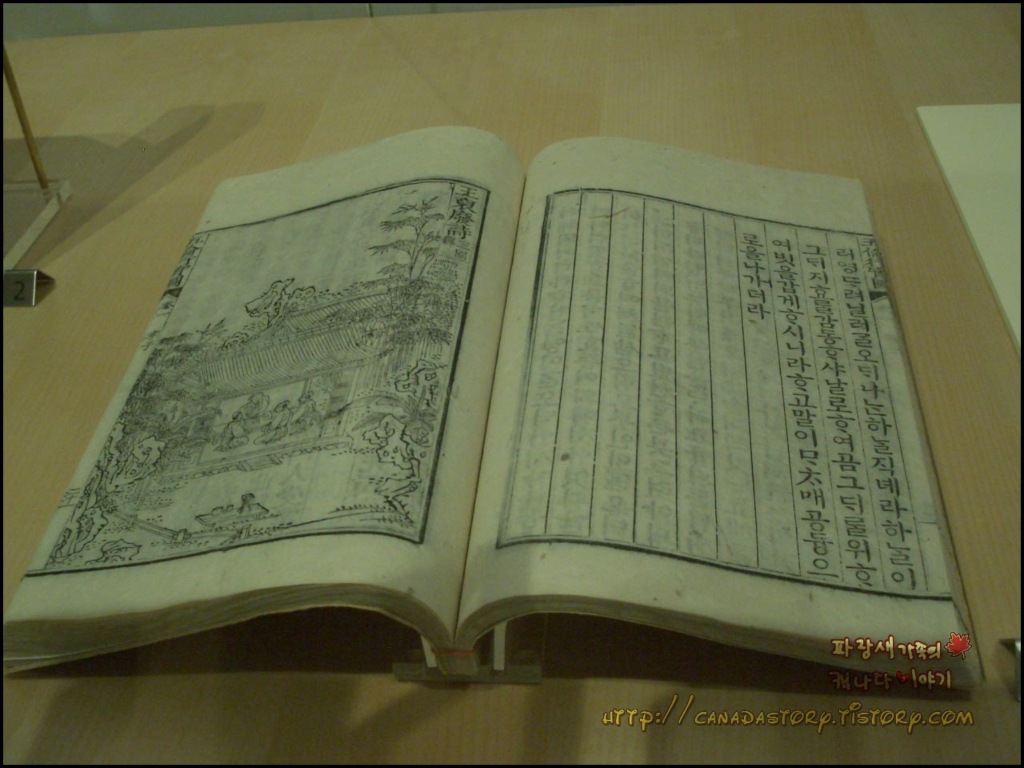 王裒廢詩
ᄃᆞ려닐러ᄀᆞᆯ오ᄃᆡ나ᄂᆞᆫ하ᄂᆞᆯ직녜라하ᄂᆞᆯ이
그ᄃᆡ지효ᄅᆞᆯ감동ᄒᆞ샤날로ᄒᆞ여곰그ᄃᆡᄅᆞᆯ위ᄒᆞ
여빗을갑게ᄒᆞ시니라ᄒᆞ고말이ᄆᆞᄎᆞ매공듕으
로올나가더라
2
파랑새 가족의
캐나다 이야기
HTTP://CANADASTORY.TISTORY.COM